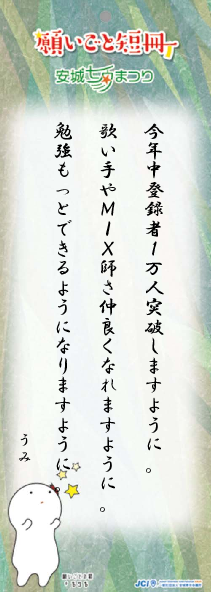 願いごと短冊
安城七夕まつり
今年中登録者1万人突破しますように。
歌い手やMIX師さ仲良くなれますように。
勉強もっとできるようになりますように
うみ
願いごと短冊
きーぼー
JCI